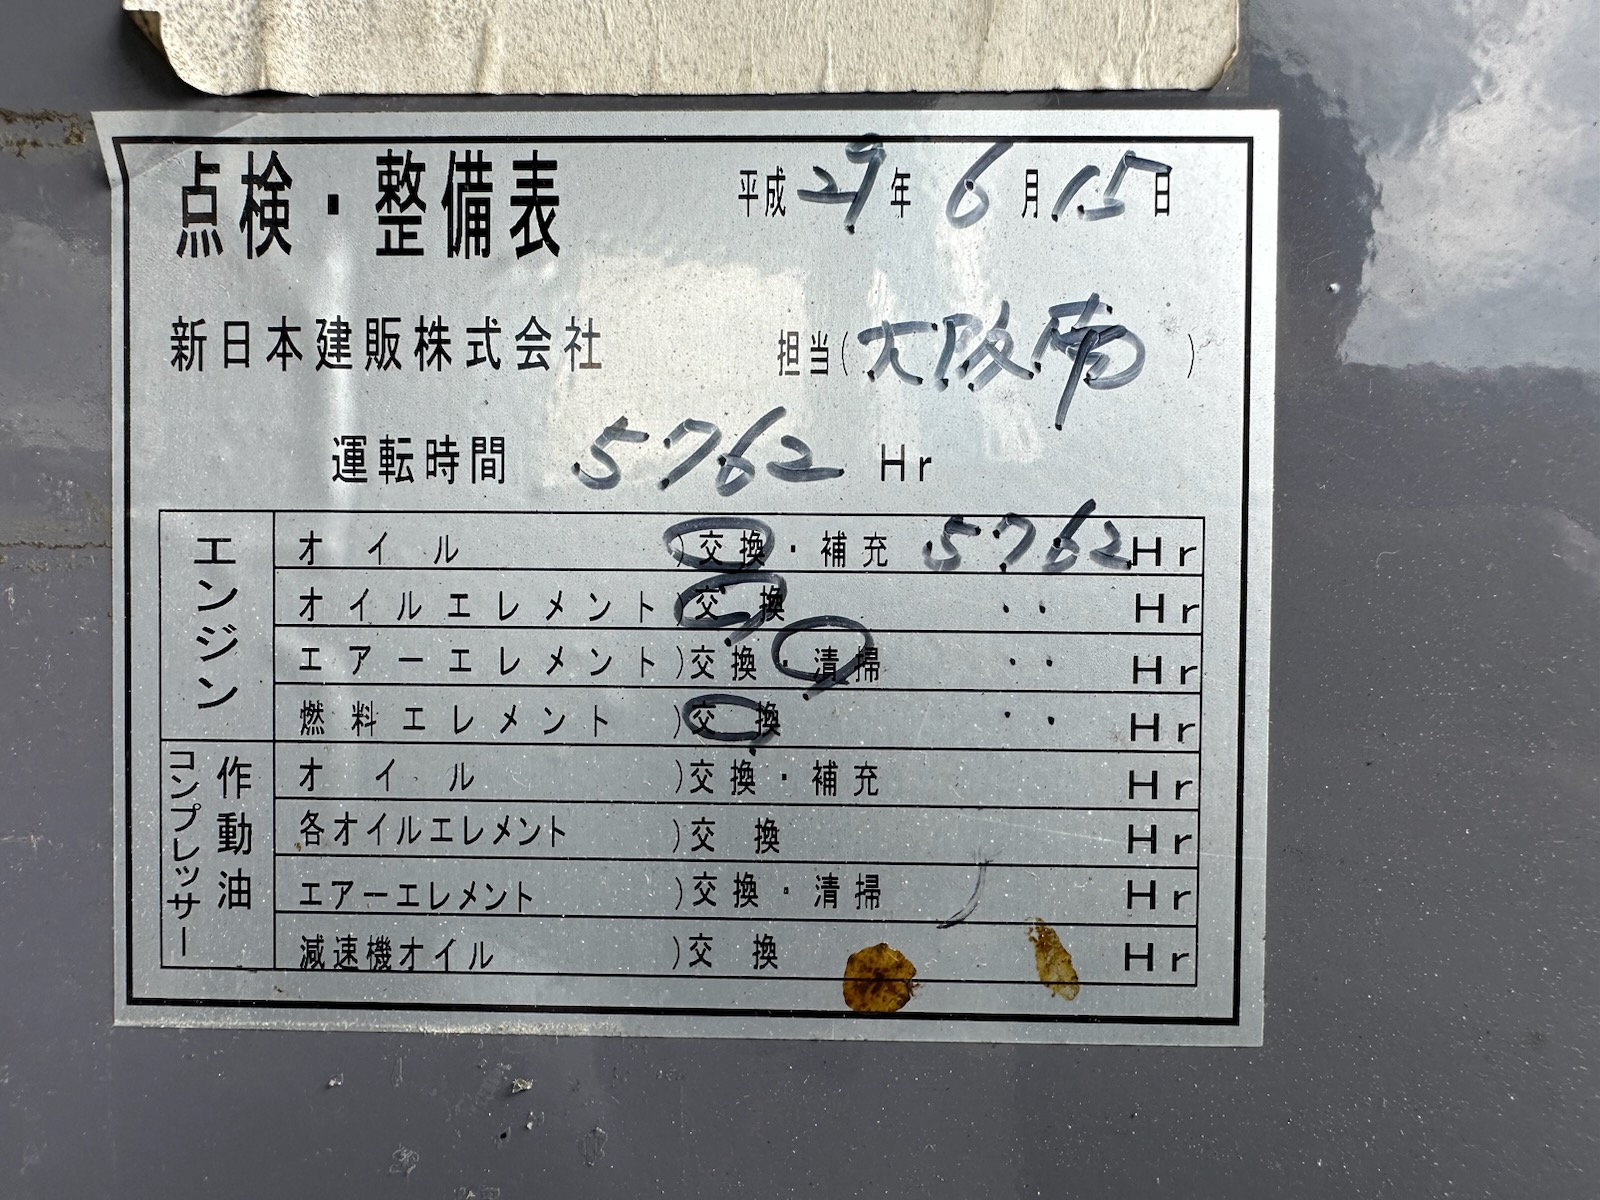 点検・整備表
平成29年6月15日
新日本建販株式会社 担当(大阪南)
運転時間 5762 Hr
エンジン
オイル )交換・補充 5762Hr
オイルエレメント)交換 〃 Hr
エアーエレメント)交換・清掃 〃 Hr
燃料エレメント )交換 〃 Hr
コンプレッサー
作動油
オイル )交換・補充 Hr
各オイルエレメント )交換 Hr
エアーエレメント )交換・清掃 Hr
減速機オイル )交換 Hr